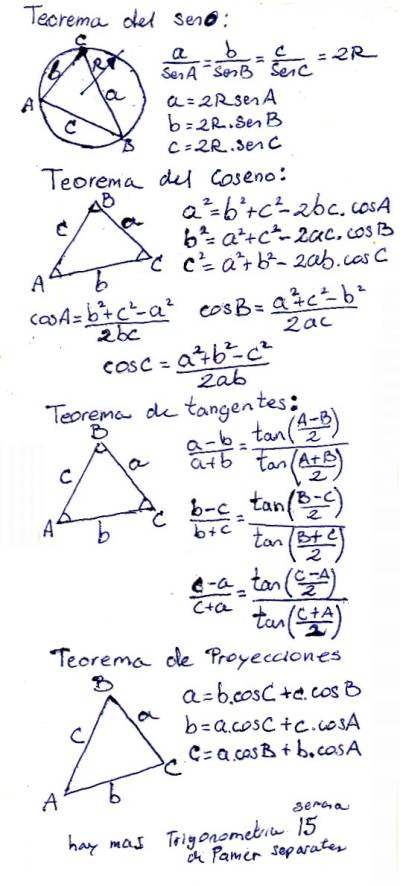 Teorema del seno:
C
b R a
A c B
a/senA = b/senB = c/senC = 2R
a=2R senA
b=2R.senB
c=2R.senC
Teorema del Coseno:
B
c a
A b C
a²=b²+c²-2bc.cosA
b²=a²+c²-2ac.cosB
c²=a²+b²-2ab.cosC
cosA=(b²+c²-a²)/2bc cosB=(a²+c²-b²)/2ac
cosC=(a²+b²-c²)/2ab
Teorema de tangentes:
B
c a
A b C
(a-b)/(a+b)=tan((A-B)/2)/tan((A+B)/2)
(b-c)/(b+c)=tan((B-C)/2)/tan((B+C)/2)
(c-a)/(c+a)=tan((C-A)/2)/tan((C+A)/2)
Teorema de Proyecciones
B
c a
A b C
a=b.cosC+c.cosB
b=a.cosC+c.cosA
c=a.cosB+b.cosA
semana
hay mas Trigonometria 15
de Pamer separatas